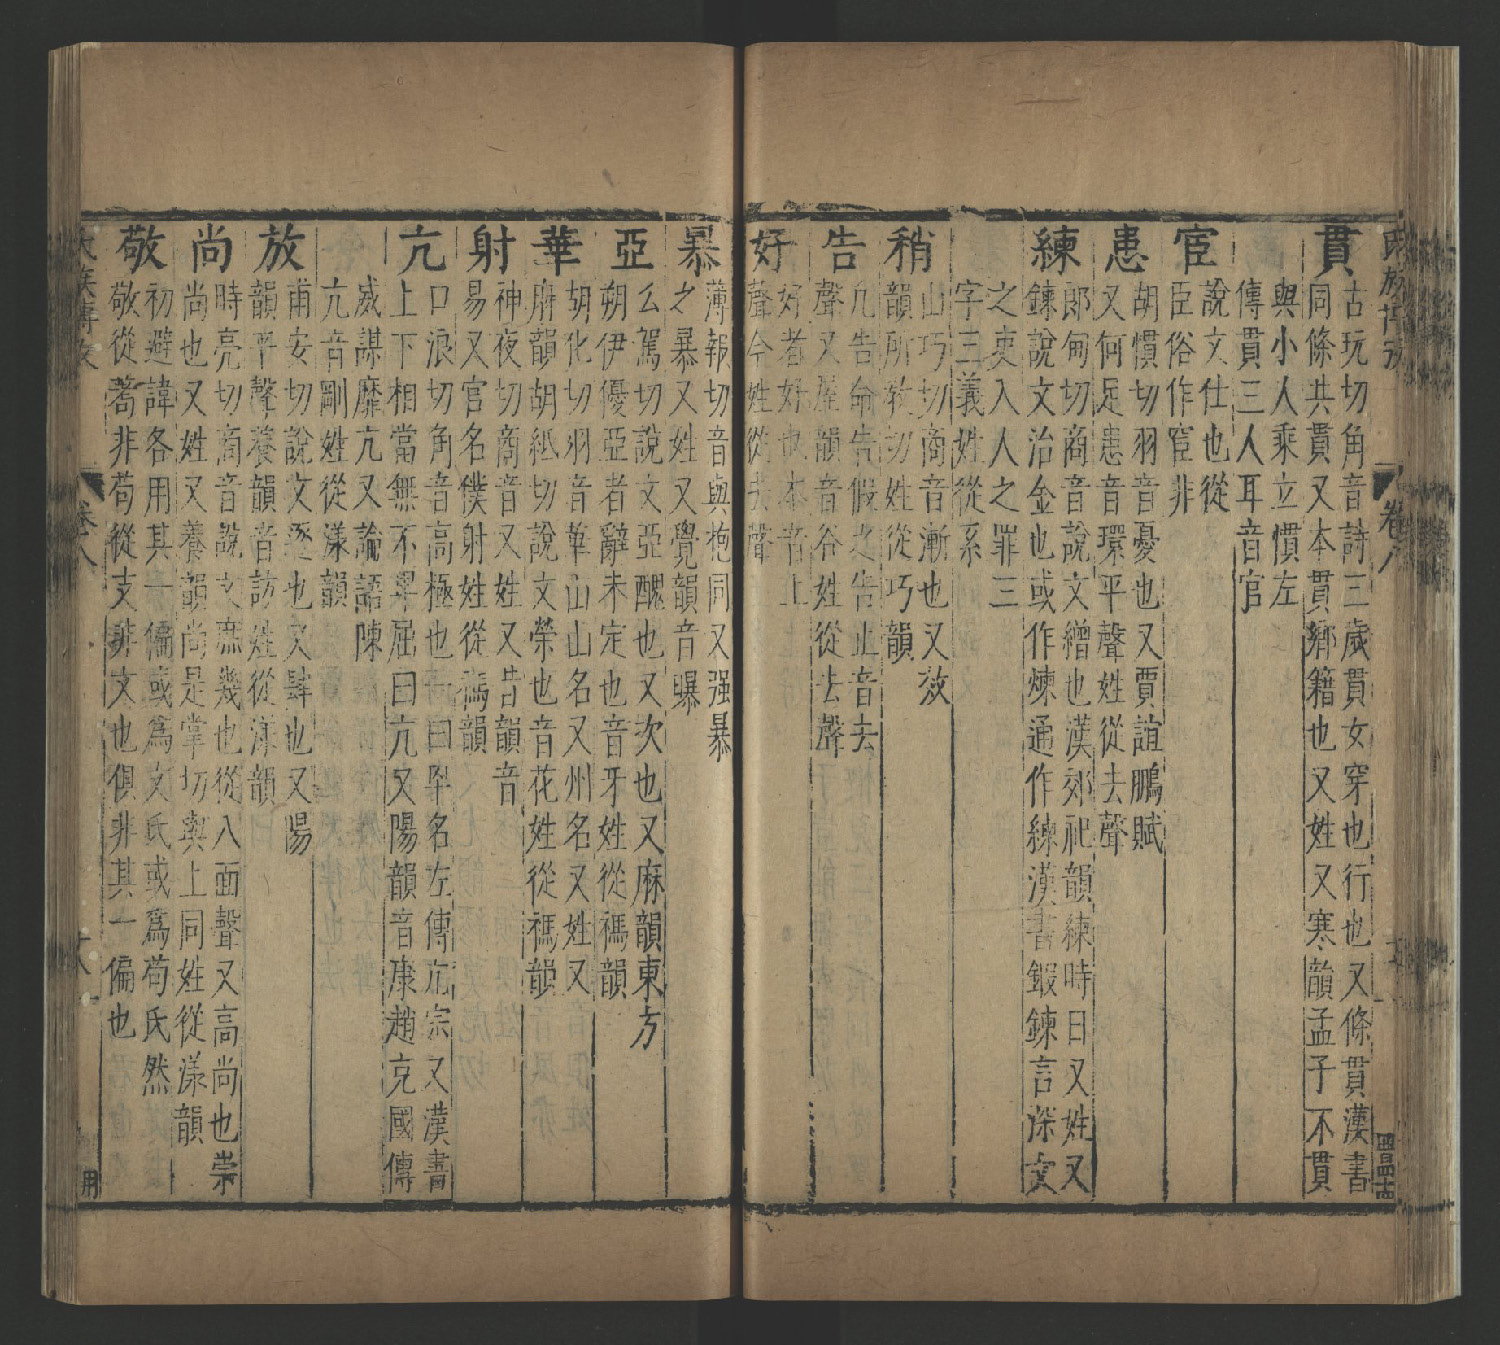 氏族博攷
卷八
貫
古玩切角音詩三歲貫女穿也行也又條貫漢書
同條共貫又本貫鄉籍也又姓又寒韻孟子不貫
與小人乘立慣左
傳貫三人耳音官
宦
說文仕也從
臣俗作䆠非
患
胡慣切羽音憂也又賈誼鵬賦
又何足患音環平聲姓從去聲
練
郎甸切商音說文繒也漢郊祀韻練時日又姓又
鍊說文治金也或作煉通作練漢書鍛鍊言深文
之吏入人之罪三
字三義姓從系
稍
山巧切商音漸也又效
韻所敎切姓從巧韻
告
凡告命告假之告止音去
聲又屋韻音谷姓從去聲
好
好者好也本音上
聲今姓從去聲
暴
薄報切音與抱同又强暴
之暴又姓又覺韻音曝
亞
么駕切說文亞醜也又次也又麻韻東方
朔伊優亞者辭未定也音牙姓從禡韻
華
胡化切羽音華山山名又州名又姓又
麻韻胡紙切說文榮也音花姓從禡韻
射
神夜切商音又姓又昔韻音
易又官名僕射姓從禡韻
亢
口浪切角音高極也曰星名左傳亢宗又漢書
上下相當無不畢屈曰亢又陽韻音康趙充國傳
威謀靡亢又論語陳
亢音剛姓從漾韻
放
甫安切說文逐也又肆也又陽
韻平聲養韻音訪姓從漾韻
尚
時亮切商音說文庶幾也從八面聲又高尚也崇
尚也又姓又養韻尚是掌切與上同姓從漾韻
敬
初避諱各用其一偏或爲文氏或爲苟氏然
敬從茍非苟從攴非文也俱非其一偏也
氏族博攷
卷八
十八